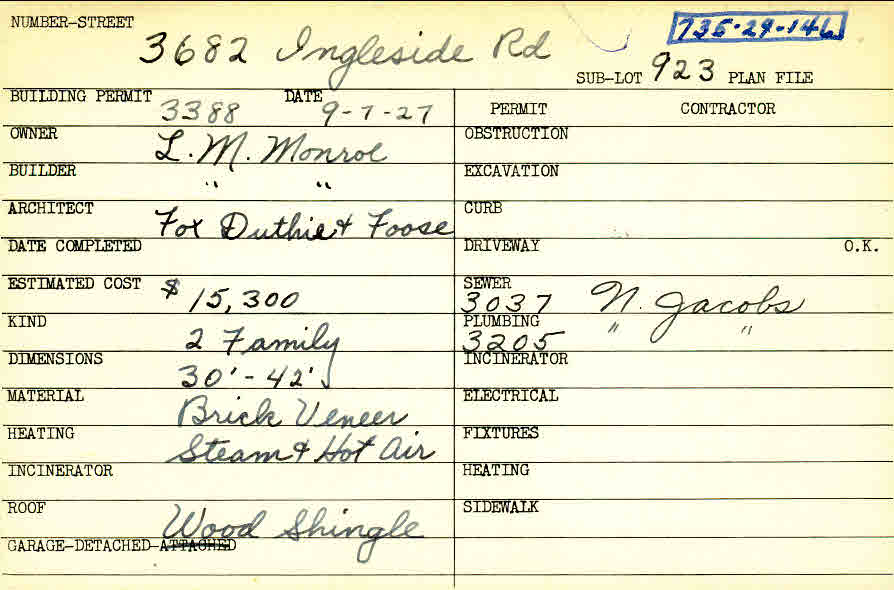 NUMBER-STREET
3682 Ingleside Rd
735-29-146
SUB-LOT 923 PLAN FILE
BUILDING PERMIT 3388 DATE 9-7-27
PERMIT CONTRACTOR
OWNER L. M. Monroe
OBSTRUCTION
BUILDER " "
EXCAVATION
ARCHITECT Fox Duthie & Foose
CURB
DATE COMPLETED
DRIVEWAY O.K.
ESTIMATED COST $15,300
SEWER 3037 N. Jacobs
KIND 2 Family
PLUMBING 3205 " "
DIMENSIONS 30' - 42'
INCINERATOR
MATERIAL Brick Veneer
ELECTRICAL
HEATING Steam & Hot Air
FIXTURES
INCINERATOR
HEATING
ROOF Wood Shingle
SIDEWALK
GARAGE-DETACHED-ATTACHED